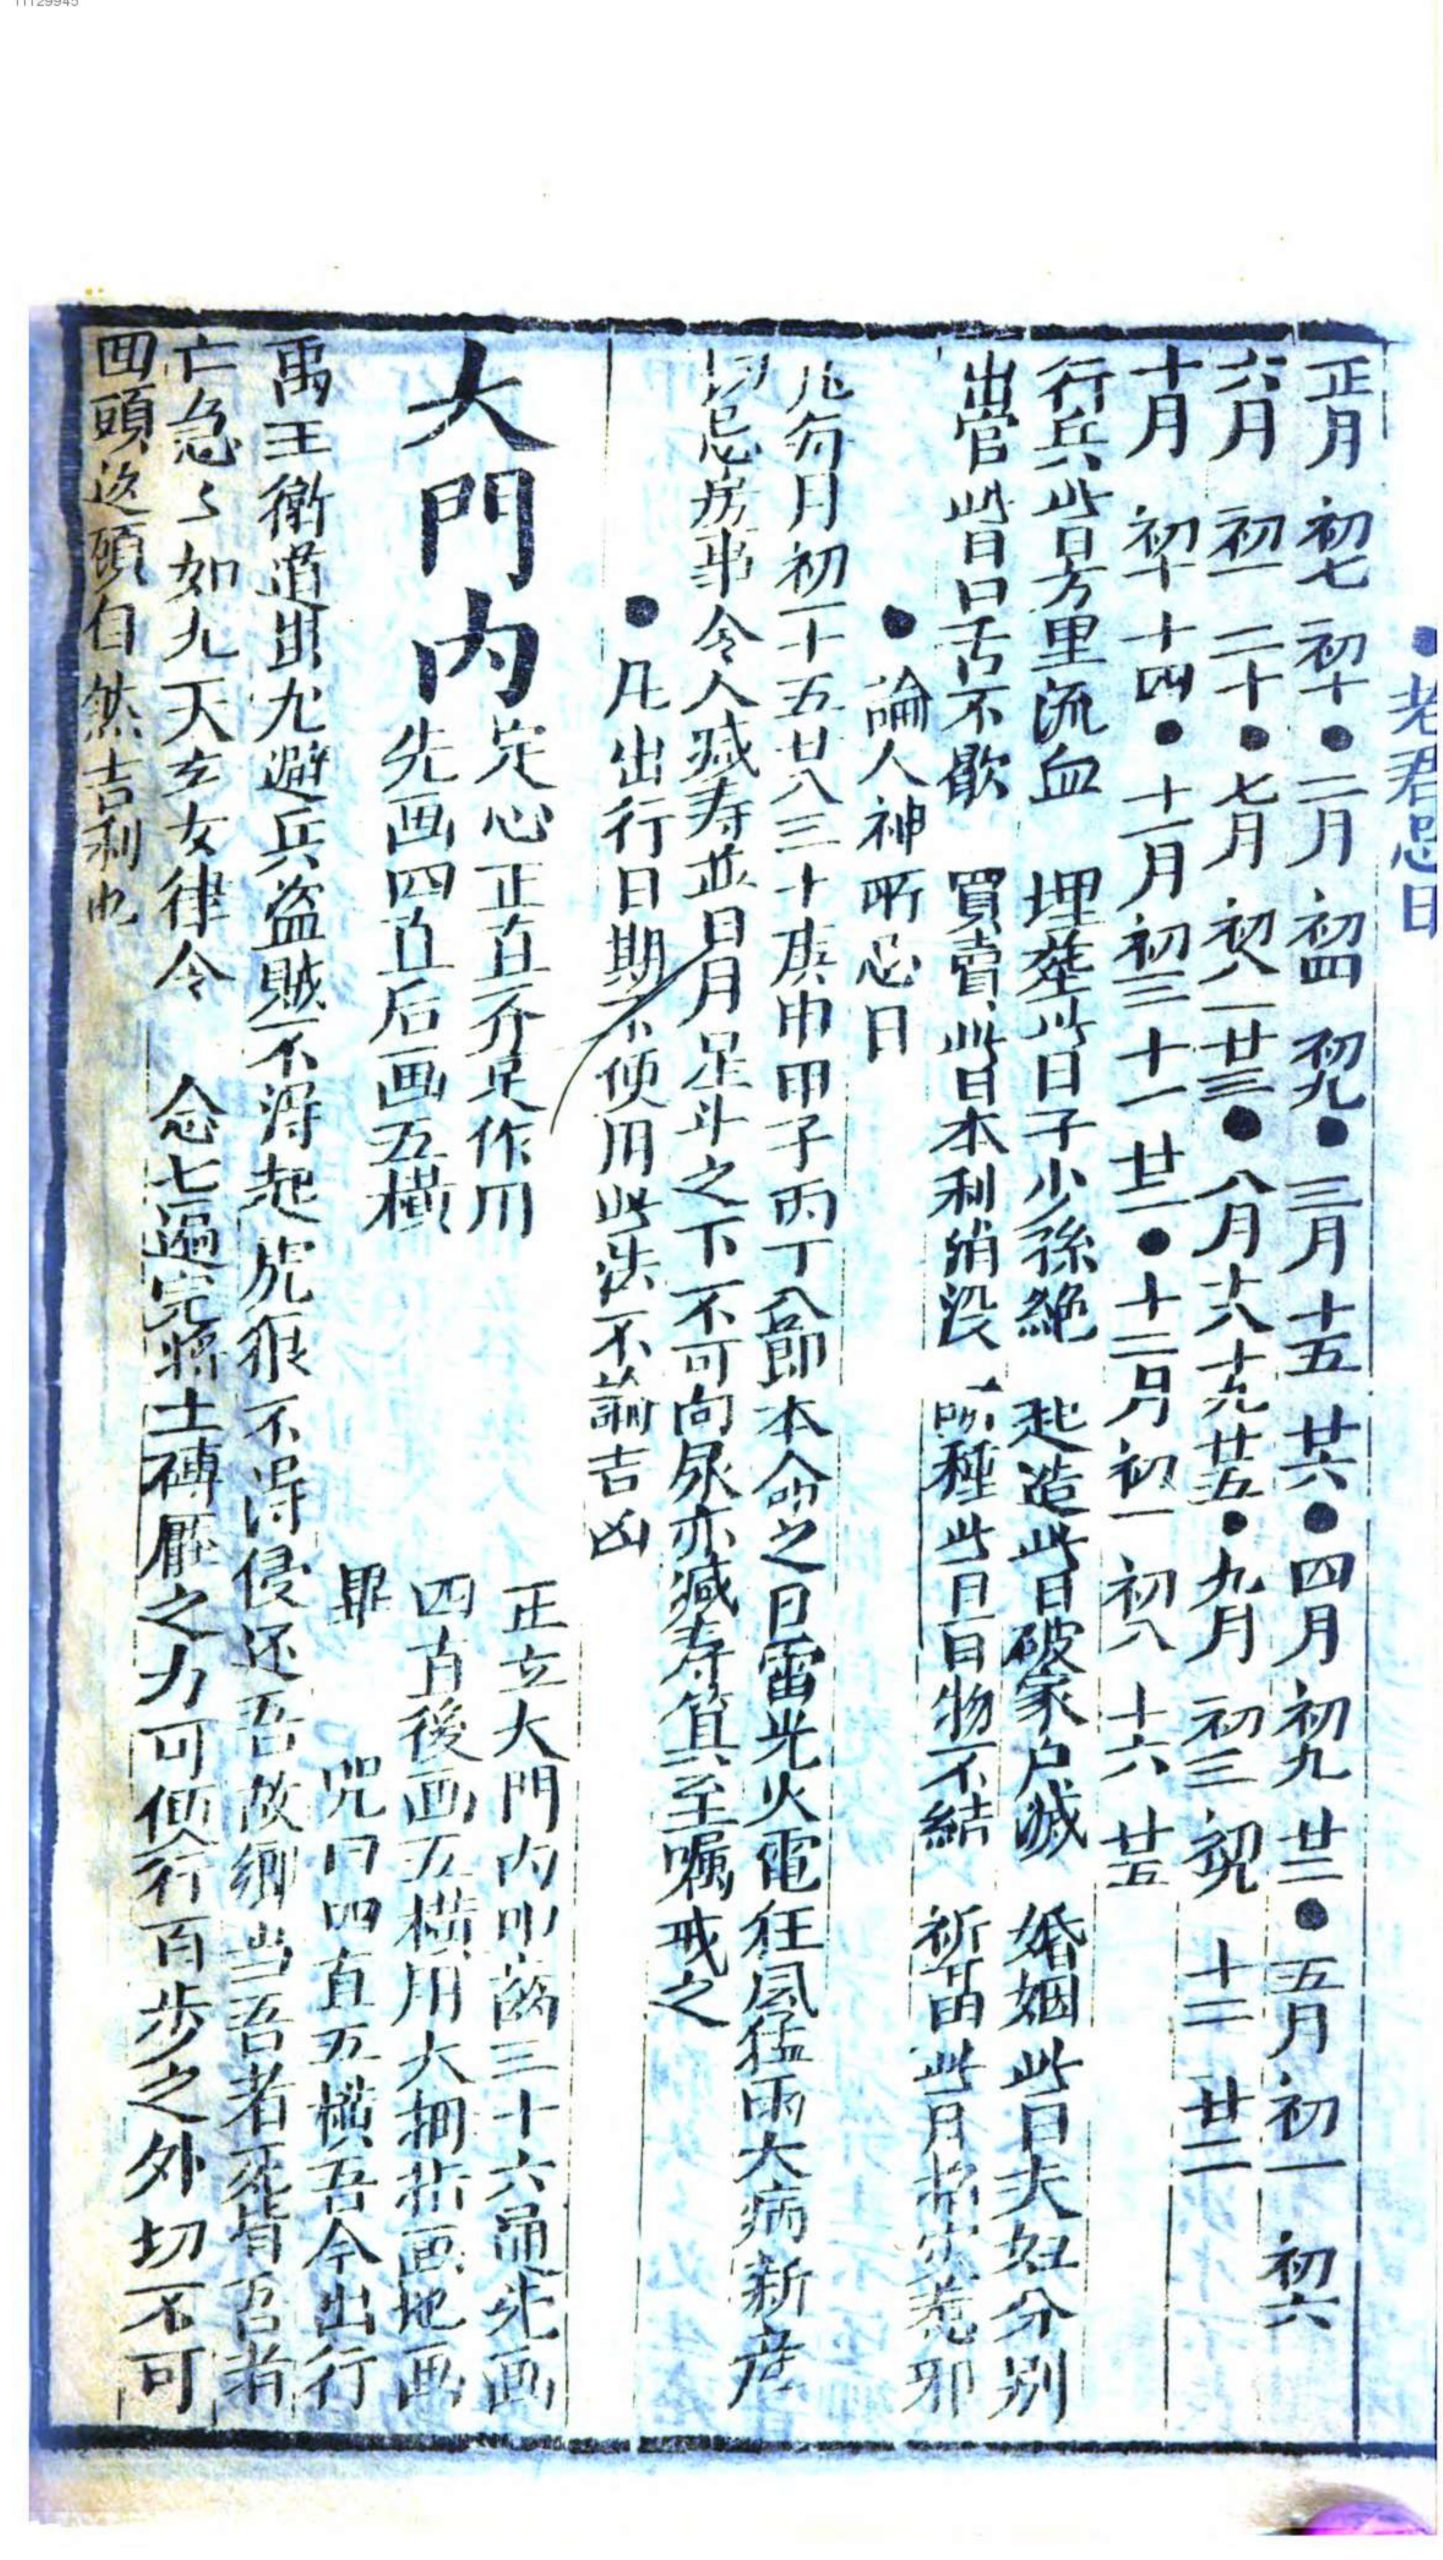 11129945
●老君忌日
正月 初七 初十●二月 初四 初九●三月 十五 廿六●四月 初九 廿二●五月 初一 初六
六月 初一 二十●七月 初八 廿三●八月 十八 十九 廿五●九月 初三 初九 十二 廿二
十月 初十 十四●十一月 初三 十一 廿二●十二月 初一 初八 十六 廿五
行兵此日方里流血 埋塟此日子少孫絶 起造此日破家户滅 婚姻此日夫妇分别
出官此日口舌不歇 買賣此日本利消没 種此日百物不結 祈苗此月招惹邪
●論人神所忌日
凢每月初一十五廿八三十庚申甲子丙丁八節本命之日雷光火電狂風猛雨大病新产
切忌房事令人减寿並日月星斗之下不可向尿亦减寿筭至嘱戒之
●凡出行日期不便用此法不論吉凶
大門内
定心正直齐足作用
先画四直后画五横
正立大門内叩齒三十六通先画
四直後画五横用大拇指画地画
畢 咒曰四直五横吾今出行
禹王衛道蚩尤避兵盗賊不得起虎狼不得侵还吾故鄉当吾者死背吾者
亡急々如九天玄女律令 念七遍完将土磚壓之力可便行百步之外切不可
回頭迯頭自然吉利也